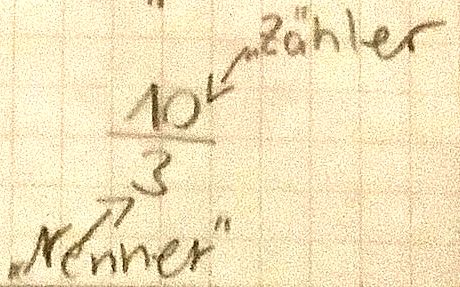 „Zähler
10
3
„Nenner“